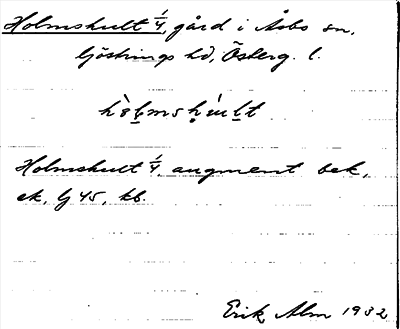 Holmshult 1/4, gård i Åsbo sn,
Göstrings hd, Österg. l.
Holmshult 1/4, augment bek.
ek. bj 45, kb.
Erik Alm 1932